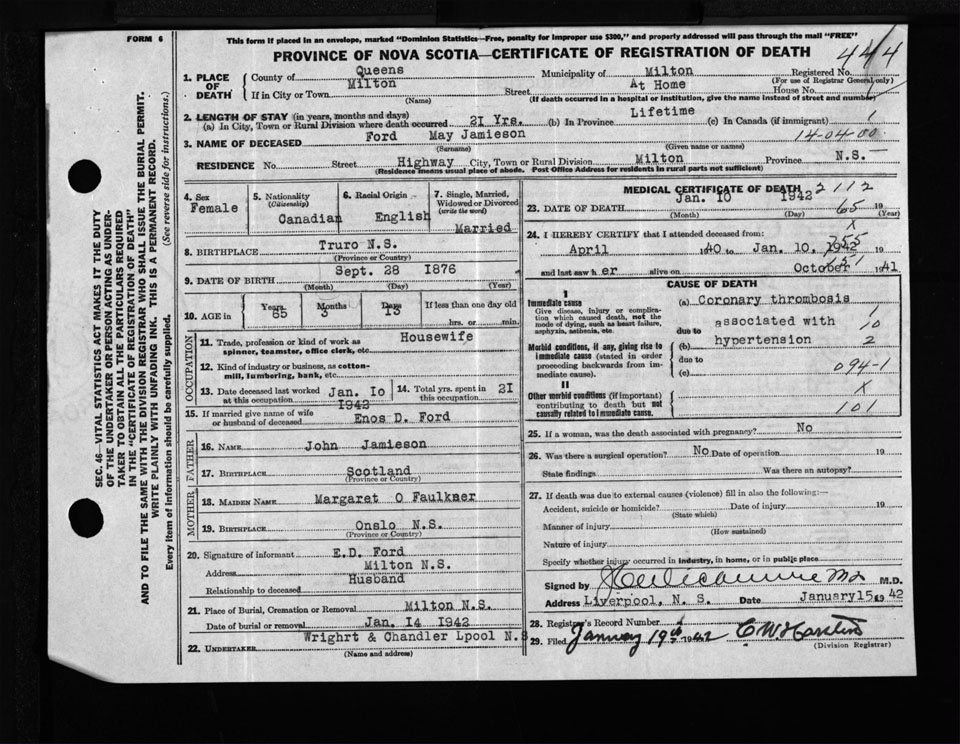 FORM 6
This form if placed in an envelope, marked "Dominion Statistics—Free, penalty for improper use $300," and properly addressed will pass through the mail "FREE"
PROVINCE OF NOVA SCOTIA—CERTIFICATE OF REGISTRATION OF DEATH
444
1. PLACE OF DEATH
County of Queens Municipality of Milton Registered No.
(For use of Registrar General only)
If in City or Town Milton Street At Home House No.
(Name) (If death occurred in a hospital or institution, give the name instead of street and number)
2. LENGTH OF STAY (in years, months and days)
(a) In City, Town or Rural Division where death occurred 21 Yrs. (b) In Province Lifetime (c) In Canada (if immigrant) 1
14-04-00
3. NAME OF DECEASED Ford May Jamieson
(Surname) (Given name or names)
RESIDENCE No. Street Highway City, Town or Rural Division Milton Province N.S.
(Residence means usual place of abode. Post Office Address for residents in rural parts not sufficient)
4. Sex Female
5. Nationality (Citizenship) Canadian
6. Racial Origin English
7. Single, Married, Widowed or Divorced (write the word) Married
8. BIRTHPLACE Truro N.S.
(Province or Country)
9. DATE OF BIRTH Sept. 28 1876
(Month) (Day) (Year)
10. AGE in Years 65 Months 3 Days 13 If less than one day old hrs. or min.
OCCUPATION
11. Trade, profession or kind of work as spinner, teamster, office clerk, etc. Housewife
12. Kind of industry or business, as cotton-mill, lumbering, bank, etc.
13. Date deceased last worked at this occupation Jan. 10 1942
14. Total yrs. spent in this occupation 21
15. If married give name of wife or husband of deceased Enos D. Ford
FATHER
16. NAME John Jamieson
17. BIRTHPLACE Scotland
(Province or Country)
MOTHER
18. MAIDEN NAME Margaret O Faulkner
19. BIRTHPLACE Onslo N.S.
(Province or Country)
20. Signature of informant E.D. Ford
Address Milton N.S.
Relationship to deceased Husband
21. Place of Burial, Cremation or Removal Milton N.S.
Date of burial or removal Jan. 14 1942
22. UNDERTAKER Wrighrt & Chandler Lpool N.S
(Name and address)
MEDICAL CERTIFICATE OF DEATH
2112
23. DATE OF DEATH Jan. 10 1942
(Month) (Day) (Year)
65
X
24. I HEREBY CERTIFY that I attended deceased from:
April 1940 to Jan. 10, 1942 19
and last saw her alive on October 1941
CAUSE OF DEATH
I
Immediate cause
Give disease, injury or complication which caused death, not the mode of dying, such as heart failure, asphyxia, asthenia, etc.
(a) Coronary thrombosis
1
due to associated with
10
Morbid conditions, if any, giving rise to immediate cause (stated in order proceeding backwards from immediate cause).
(b) hypertension
2
due to
(c)
094-1
II
Other morbid conditions (if important) contributing to death but not causally related to immediate cause.
X
101
25. If a woman, was the death associated with pregnancy? No
26. Was there a surgical operation? No Date of operation 19
State findings Was there an autopsy?
27. If death was due to external causes (violence) fill in also the following:—
Accident, suicide or homicide? Date of injury 19
(State which)
Manner of injury
(How sustained)
Nature of injury
Specify whether injury occurred in industry, in home, or in public place
Signed by M.D.
Address Liverpool, N. S. Date January 15, 1942
28. Registrar's Record Number
29. Filed January 19th 1942
(Division Registrar)
SEC. 46—VITAL STATISTICS ACT MAKES IT THE DUTY
OF THE UNDERTAKER OR PERSON ACTING AS UNDER-
TAKER TO OBTAIN ALL THE PARTICULARS REQUIRED
IN THE "CERTIFICATE OF REGISTRATION OF DEATH"
AND TO FILE THE SAME WITH THE DIVISION REGISTRAR WHO SHALL ISSUE THE BURIAL PERMIT.
WRITE PLAINLY WITH UNFADING INK. THIS IS A PERMANENT RECORD.
Every item of information should be carefully supplied. (See reverse side for instructions.)